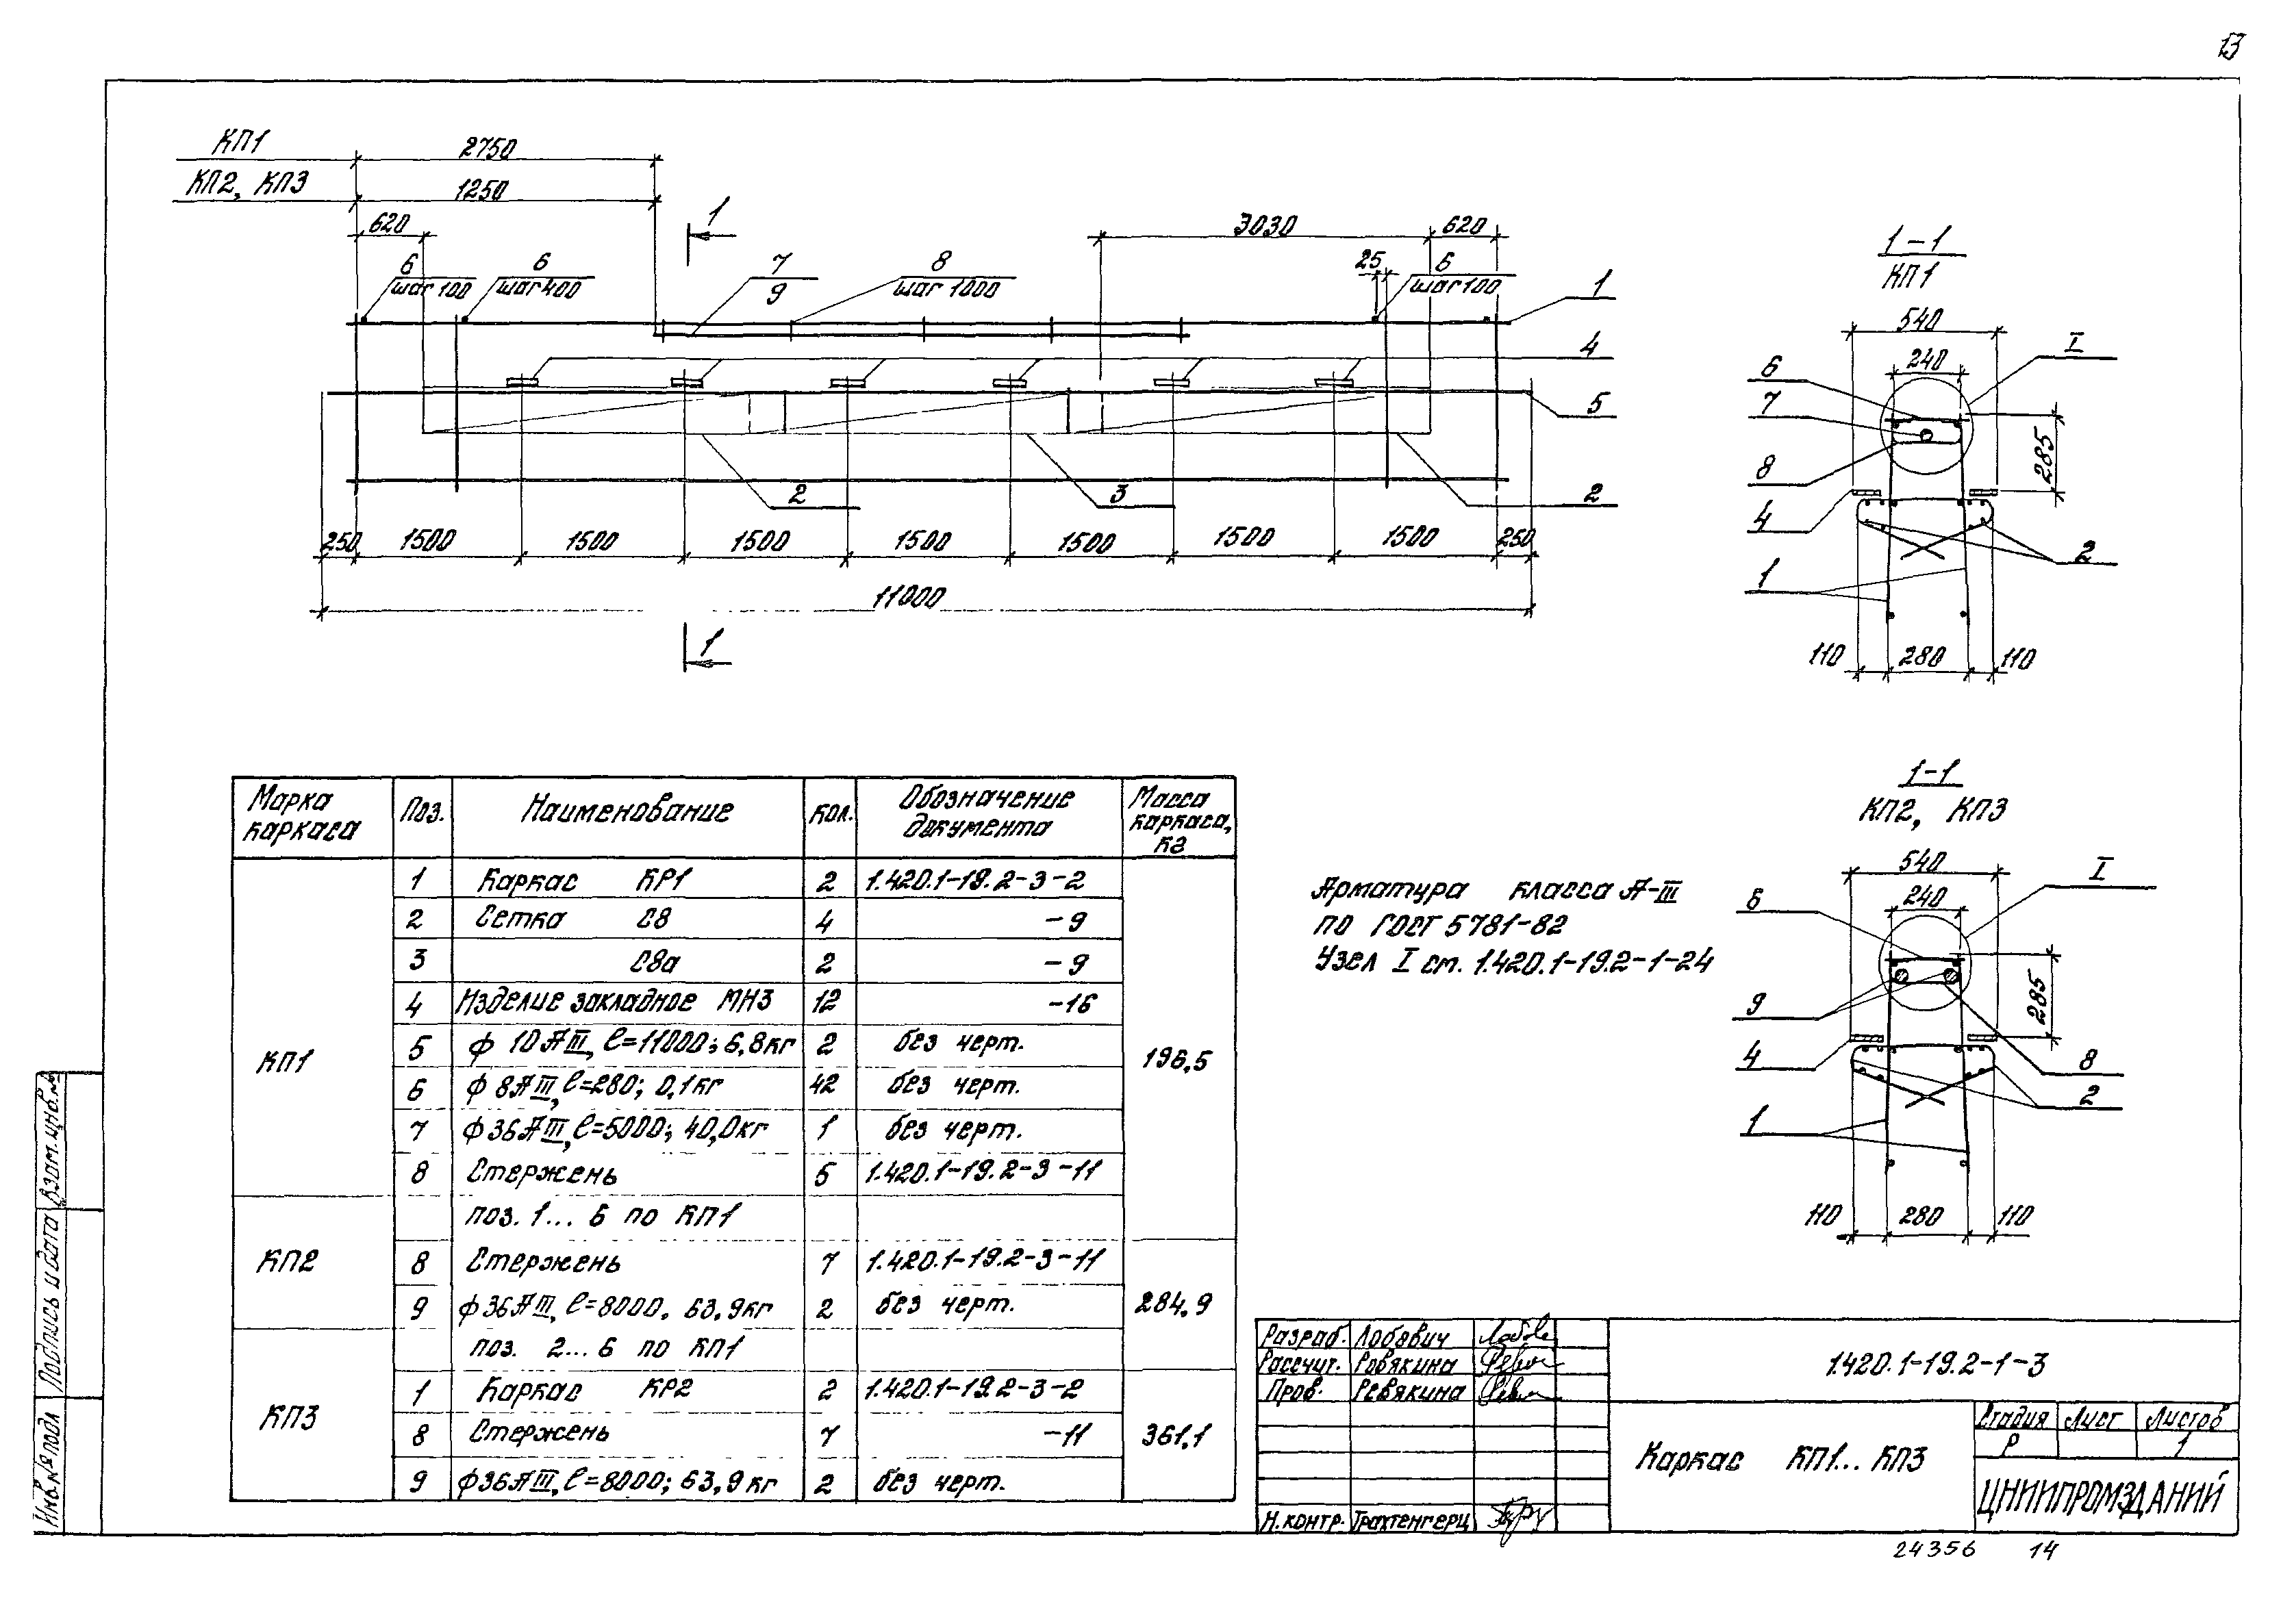 13
КП1
2750
КП2, КП3
1250
620
3030
620
6
шаг 100
6
шаг 400
7
9
8
шаг 1000
25
6
шаг 100
1
1
4
5
2
3
2
250
1500
1500
1500
1500
1500
1500
1500
250
11000
1
1-1
КП1
540
240
I
6
7
8
4
1
285
2
110
280
110
1-1
КП2, КП3
540
240
I
6
9
4
1
285
8
2
110
280
110
Марка каркаса
Поз.
Наименование
Кол.
Обозначение документа
Масса каркаса, кг
КП1
1 Каркас КР1 2 1.420.1-19.2-3-2
2 Сетка С8 4 -9
3 С8а 2 -9
4 Изделие закладное МН3 12 -16
5 ф 10 А III, ℓ=11000; 6,8кг 2 без черт.
196,5
6 ф 8 А III, ℓ=280; 0,1кг 42 без черт.
7 ф 36 А III, ℓ=5000; 40,0кг 1 без черт.
8 Стержень 5 1.420.1-19.2-3-11
КП2
поз. 1... 6 по КП1
8 Стержень 7 1.420.1-19.2-3-11
9 ф 36 А III, ℓ=8000, 63,9кг 2 без черт.
284,9
КП3
поз. 2... 6 по КП1
1 Каркас КР2 2 1.420.1-19.2-3-2
8 Стержень 7 -11
361,1
9 ф 36 А III, ℓ=8000; 63,9 кг 2 без черт.
Арматура класса А-III
по ГОСТ 5781-82
Узел I см. 1.420.1-19.2-1-24
Разраб. Лобович
Рассчит. Ревякина
Пров. Ревякина
Н. контр. Трахтенгерц
1.420.1-19.2-1-3
Каркас КП1... КП3
Стадия Лист Листов
Р 1
ЦНИИПРОМЗДАНИЙ
24356 14
Взам. инв. №
Подпись и дата
Инв. № подл